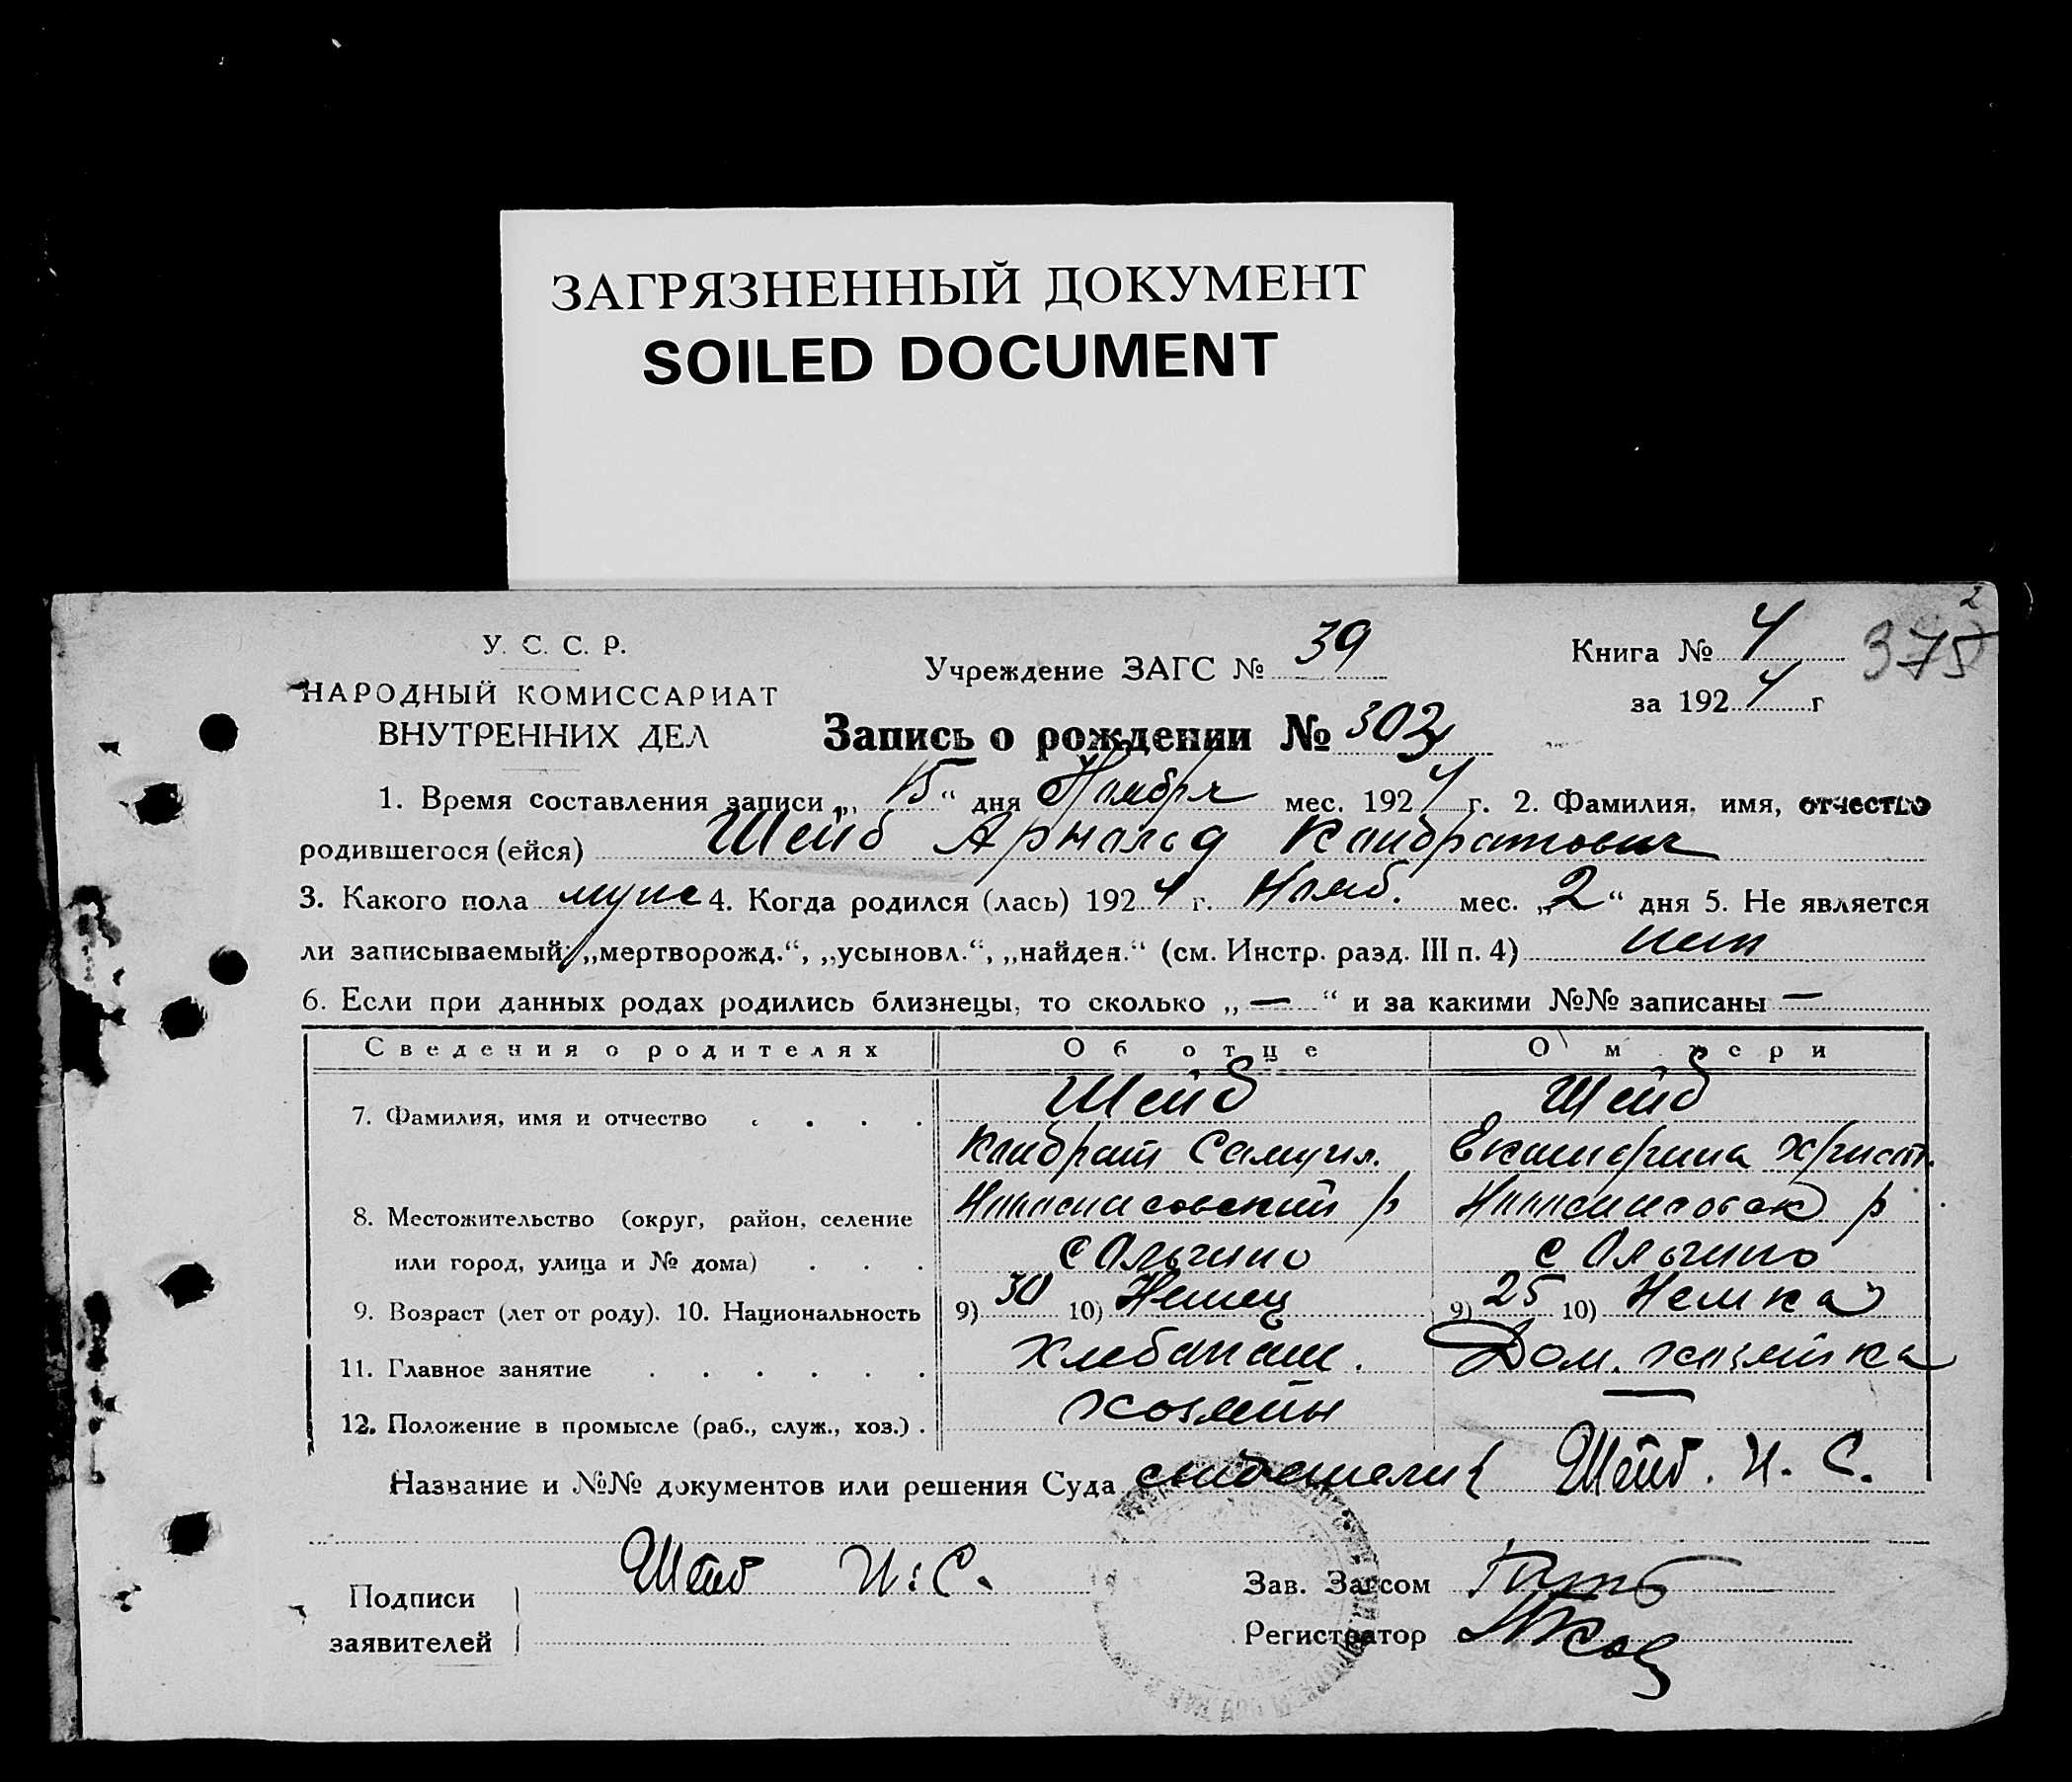 ЗАГРЯЗНЕННЫЙ ДОКУМЕНТ
SOILED DOCUMENT
2
У. С. С. Р.
НАРОДНЫЙ КОМИССАРИАТ
ВНУТРЕННИХ ДЕЛ
Учреждение ЗАГС № 39
Книга № 4 375
за 1924 г
Запись о рождении № 303
1. Время составления записи „ 15 “ дня Ноября мес. 1924 г. 2. Фамилия, имя, отчество
родившегося (ейся) Шейб Арнольд Кондратович
3. Какого пола муж 4. Когда родился (лась) 1924 г. Нояб. мес. „2“ дня 5. Не является
ли записываемый: „мертворожд.“, „усыновл.“, „найден.“ (см. Инстр. разд. III п. 4) нет
6. Если при данных родах родились близнецы, то сколько „ — “ и за какими №№ записаны —
Сведения о родителях Об отце О матери
7. Фамилия, имя и отчество . . . . Шейб Шейб
Кондрат Самуил. Екатерина Христ.
8. Местожительство (округ, район, селение р р
или город, улица и № дома) . . . с Ольгино с Ольгино
9. Возраст (лет от роду). 10. Национальность 9) 30 10) Немец 9) 25 10) Немка
11. Главное занятие . . . . . . Хлебопаш. Дом. хозяйка
12. Положение в промысле (раб., служ., хоз.) . хозяин —
Название и №№ документов или решения Суда Шейб. И. С.
Подписи
заявителей
Шейб И. С.
Зав. Загсом
Регистратор